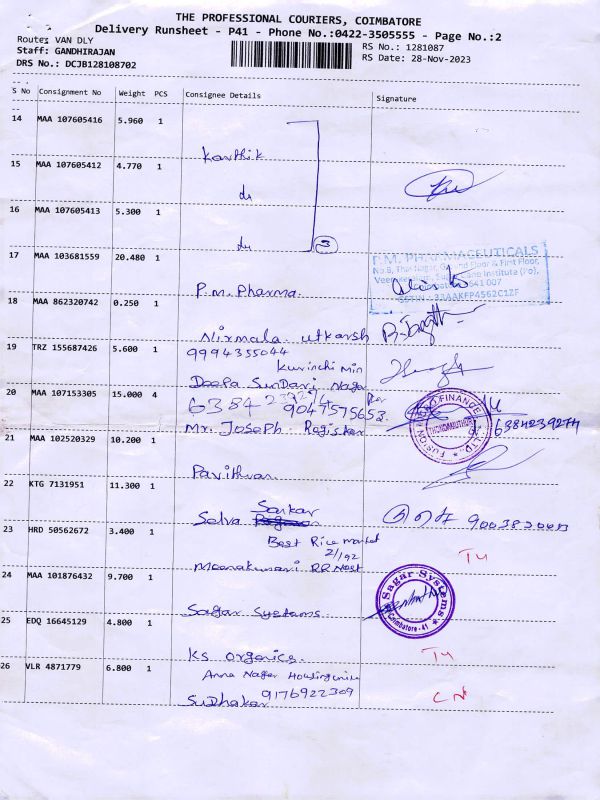 THE PROFESSIONAL COURIERS, COIMBATORE
Delivery Runsheet - P41 - Phone No.:0422-3505555 - Page No.:2
Route: VAN DLY
RS No.: 1281087
Staff: GANDHIRAJAN
RS Date: 28-Nov-2023
DRS No.: DCJB128108702
S No Consignment No Weight PCS Consignee Details Signature
14 MAA 107605416 5.960 1
Karthik
15 MAA 107605412 4.770 1
do
16 MAA 107605413 5.300 1
do 3
17 MAA 103681559 20.480 1
P.M. PHARMACEUTICALS
No.8, Thai Nagar, Ground Floor & First Floor,
Institute (Po),
641 007
GSTIN : 33AAKFP4562C1ZF
P.M. Pharma
18 MAA 862320742 0.250 1
Nirmala utkarsh
19 TRZ 155687426 5.600 1
9994355044
Kurinchi
Deepa Sundari Nagar
20 MAA 107153305 15.000 4
6384239274
9047575653
Mr. Joseph Register
6384239274
FINANCE
THONDAMUTHUR
LTD.
21 MAA 102520329 10.200 1
Pavithran
22 KTG 7131951 11.300 1
Sankar
Selva
23 HRD 50562672 3.400 1
Best Rice market
2/192
Meenakumari RR Nost
T4
24 MAA 101876432 9.700 1
Sagar Systems
Coimbatore - 41
Sagar Systems
25 EDQ 16645129 4.800 1
KS organics
T4
26 VLR 4871779 6.800 1
Anna Nagar Housing unit
9176922309
Sudhakar
CN